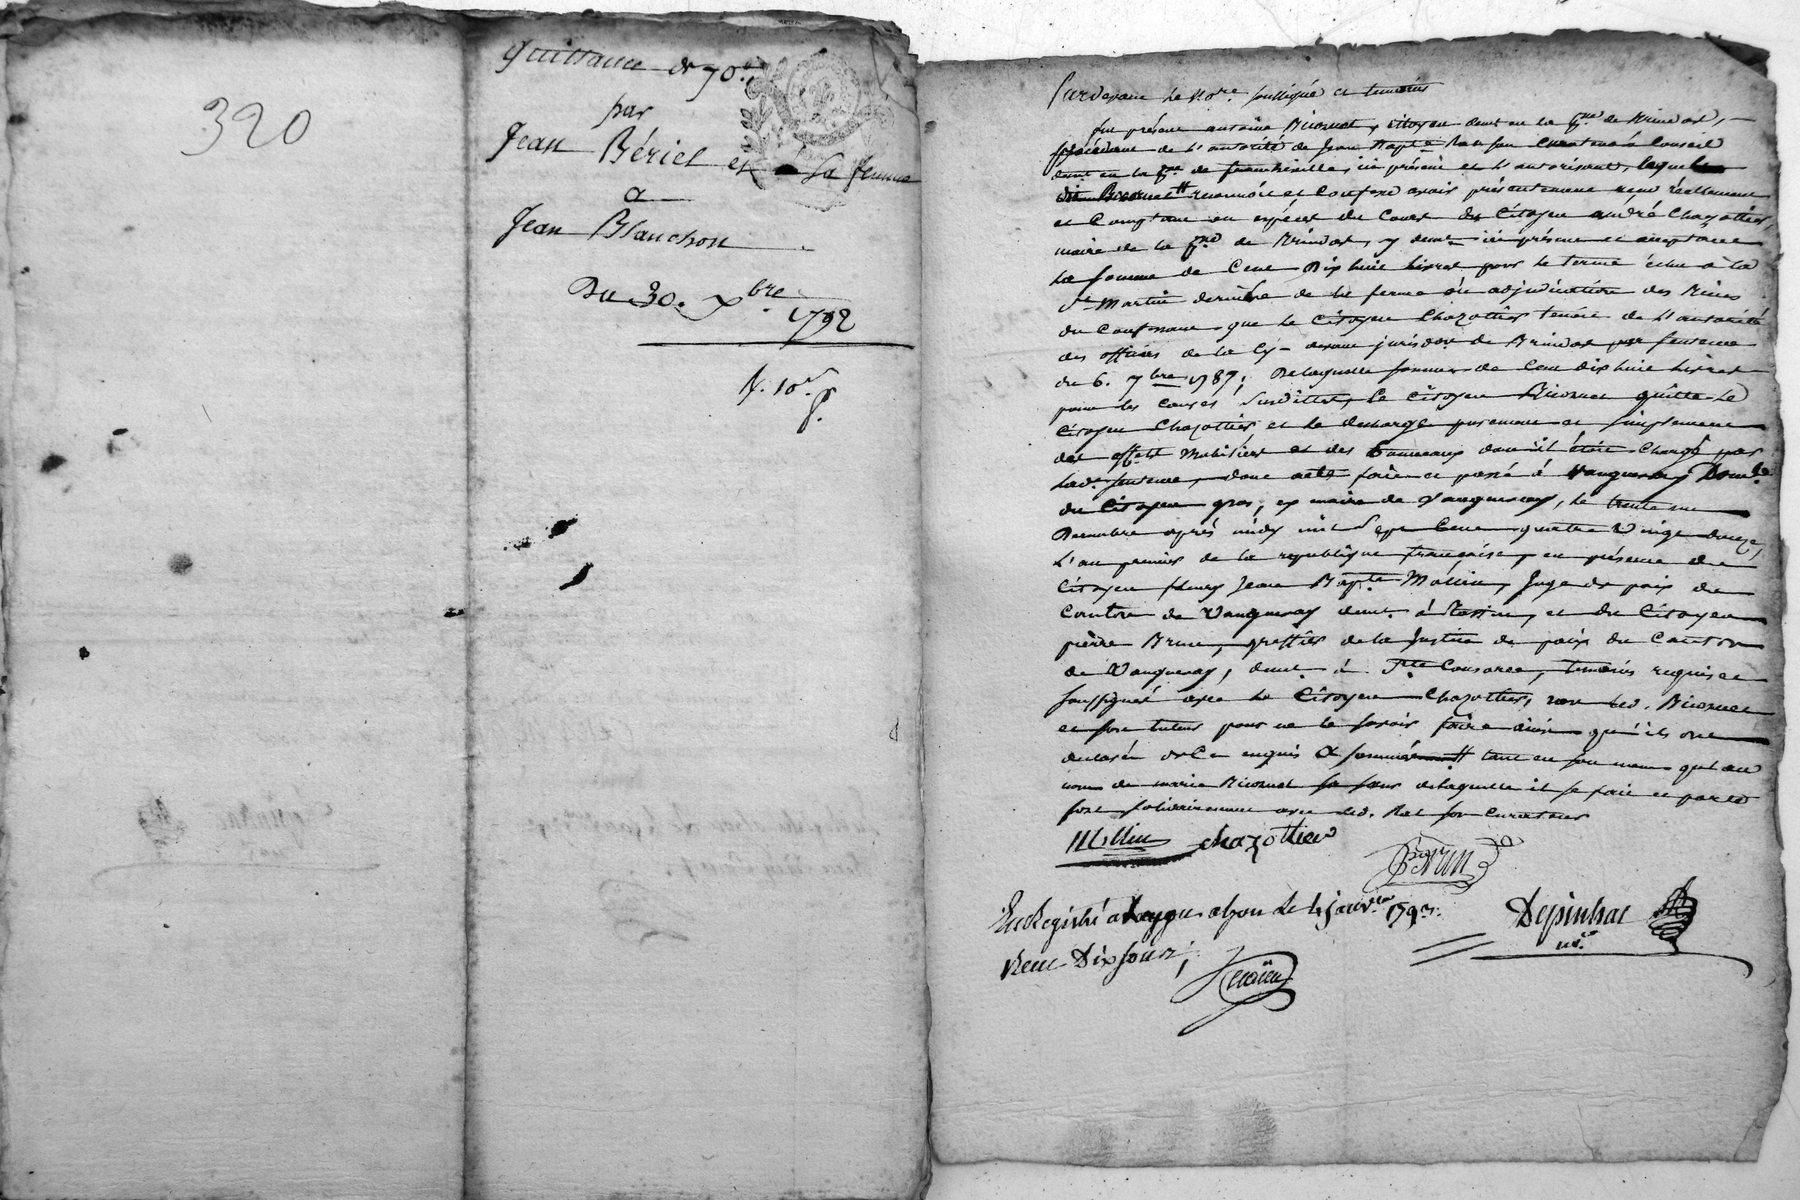 320
Quittance de 70tt
par
Jean Bériel et sa femme
a
Jean Blanchon
Du 30. Xbre
1792
Pardevant le no.re soussigné et temoins
fut présent antoine Bicornet, citoyen demt en la p.sse de Brindas,
procédant de l'autorité de Jean Bapt.e Rat son Curateur à Conseil
demt en la p.sse de francheville, ici présent et l'autorisant, lequel
dit Bicornet # reconnoit et Confesse avoir présentement reçu réellement
et Comptant en espèces du Cours du Citoyen andré Chazottier,
maire de la p.sse de Brindas, y demt ici présent et acceptant
la somme de Cent dix huit livres pour le terme échu à la
St Martin dernière de la ferme ou adjudication des Biens
du Confessant que le Citoyen Chazottier tenoit de l'autorité
des officiers de la Cy-devant jurisdon de Brindas par sentence
du 6. 7bre 1787; De laquelle somme de Cent dix huit livres
pour les Causes Susdittes, le Citoyen Bicornet quitte le
Citoyen Chazottier et le décharge purement et simplement
des effets Mobiliers et des tonneaux dont il étoit Chargé par
lade. sentence, dont acte fait et passé à Vaugneray Domle
du Citoyen gros, ex maire de Vaugneray, le trente un
Décembre après midy mil Sept Cent quatre Vingt douze,
L'an premier de la republique françoise, en présence du
Citoyen fleury Jean Bapte Mollin, Juge de paix du
Canton de Vaugneray demt à Messimy, et du Citoyen
pierre Brun, greffier de la Justice de paix du Canton
de Vaugneray, demt à Ste Consorce, temoins requis et
soussignés avec le Citoyen Chazottier, non led. Bicornet
et son tuteur pour ne le savoir faire ainsi qu'ils ont
déclaré de ce enquis & sommés # tant en son nom qu'au
nom de marie Bicornet sa sœur de laquelle il se fait et porte
fort solidairement avec led. Rat son Curateur
Mollin chazottier
Brun
Enregistré a le 4 janvier 1793.
Reçu Dix sous;
Depinhac
nre